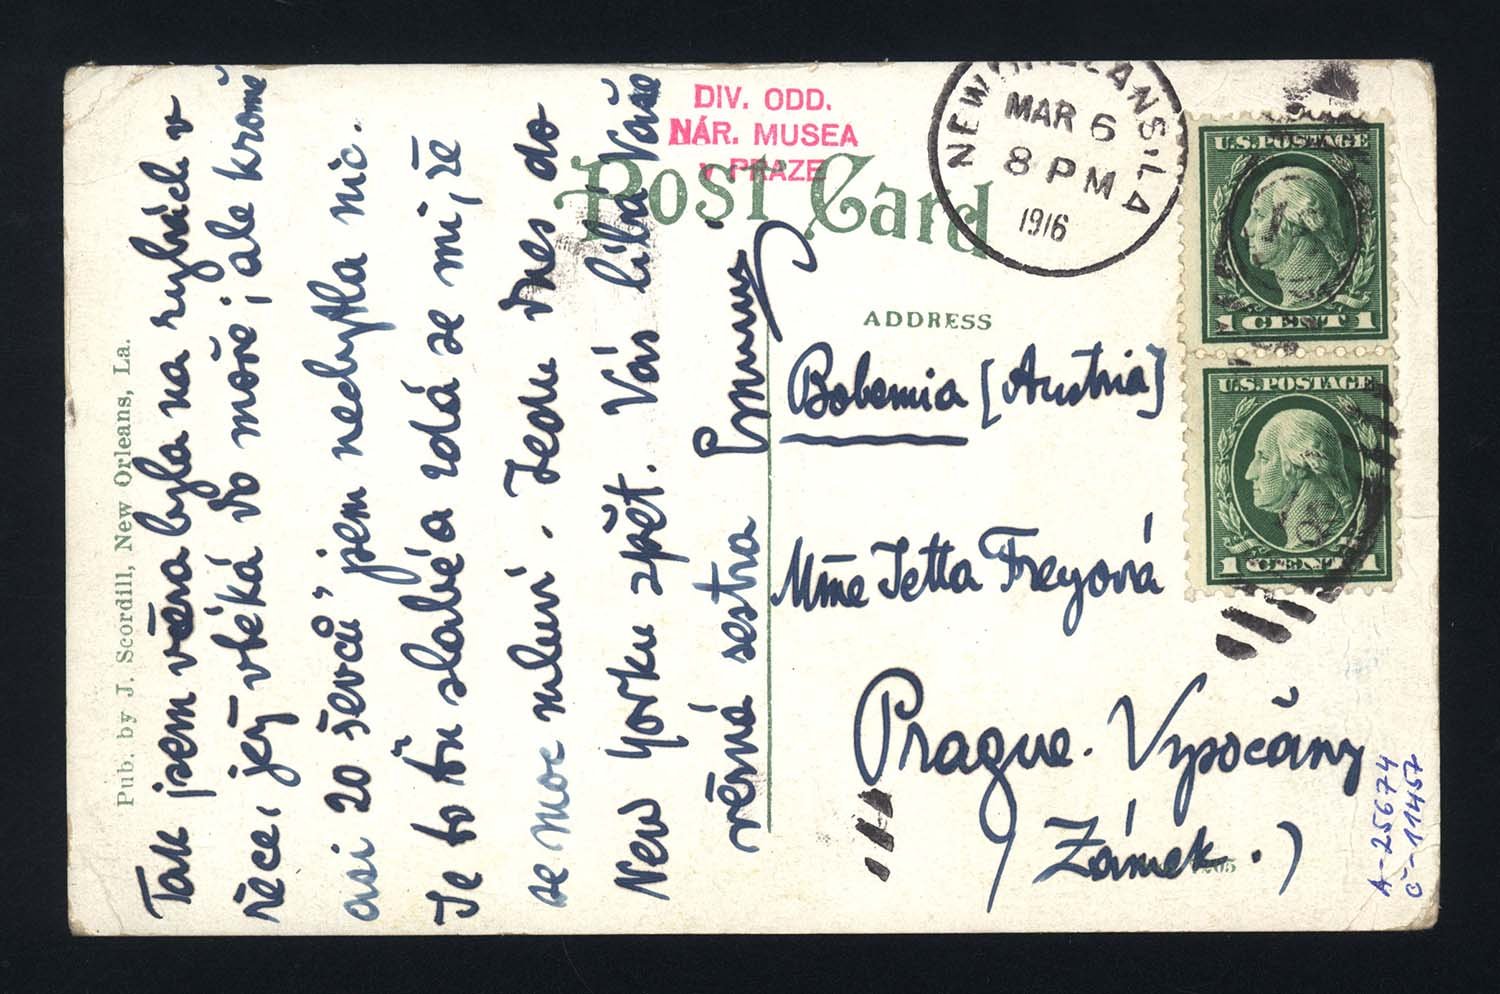 Pub. by J. Scordill, New Orleans, La.
Tak jsem včera byla na rybách v
řece, jež vtéká do moře; ale kromě
asi 20 ševců, jsem nechytla nic.
Je to tu slabé a zdá se mi, že
se moc mluví. Jedu dnes do
New Yorku zpět. Vás líbá Vaše
věrná sestra Emmy
DIV. ODD.
NÁR. MUSEA
v PRAZE
Post Card
NEW ORLEANS, LA
MAR 6
8 PM
1916
U.S. POSTAGE
1 CENT 1
U.S. POSTAGE
1 CENT 1
ADDRESS
Bohemia [Austria]
Mme Jetta Freyová
Prague. Vysočany
(Zámek.)
A-25674
Č-11457